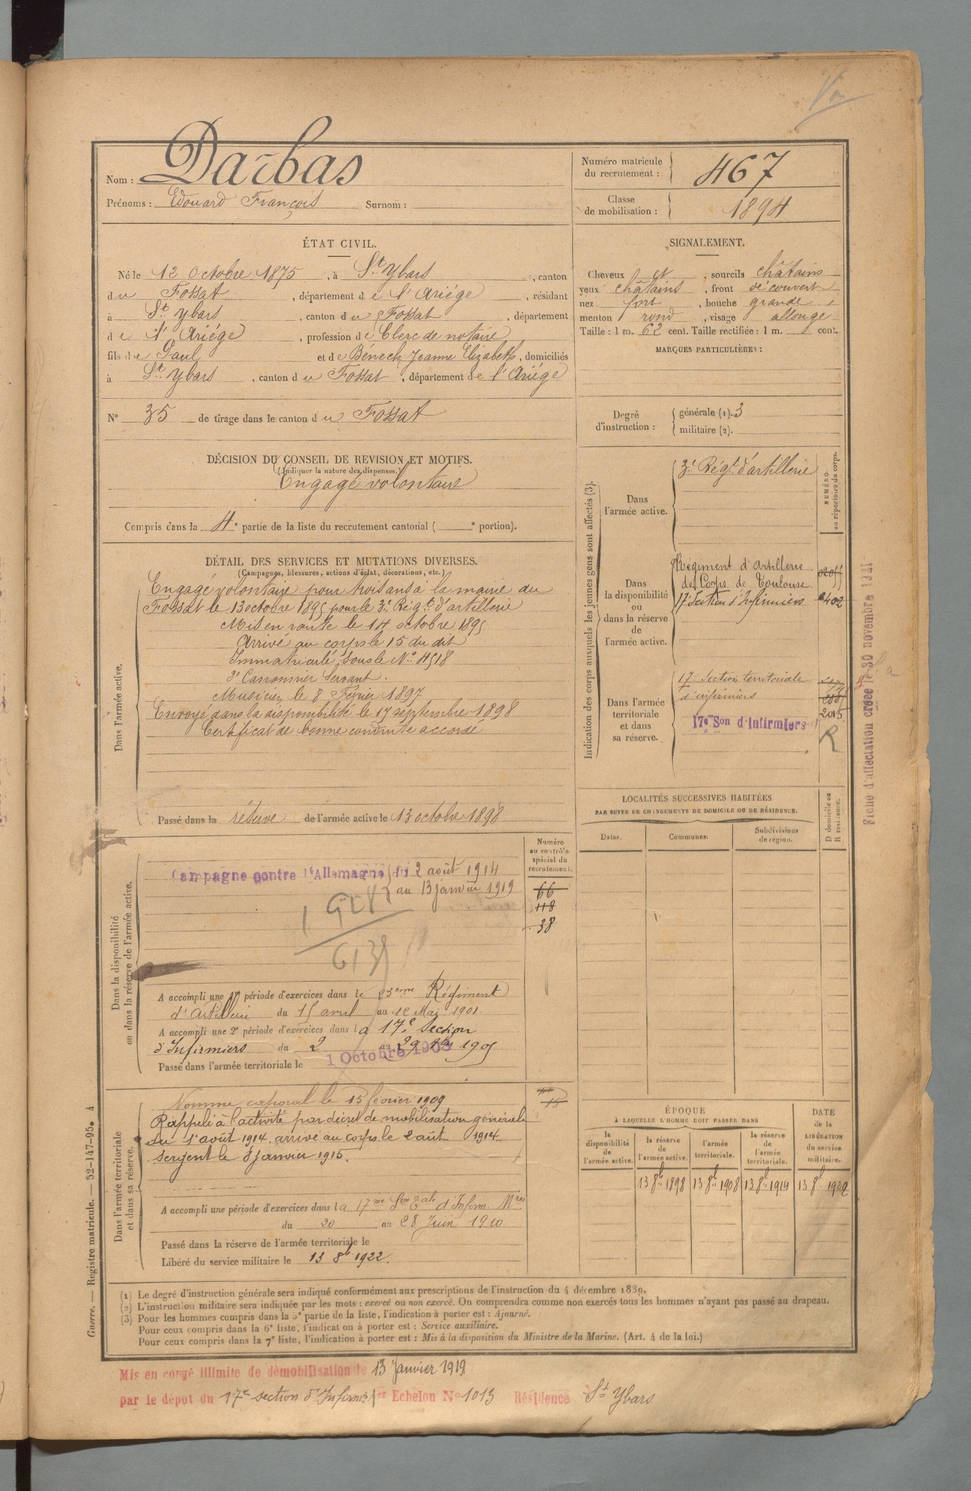 Nom : Darbas
Prénoms : Edouard François Surnom :
Numéro matricule du recrutement : 467
Classe de mobilisation : 1894
ÉTAT CIVIL.
Né le 12 Octobre 1875, à St Ybars, canton
du Fossat, département de l'Ariége, résidant
à St Ybars, canton du Fossat, département
de l'Ariége, profession de Clerc de notaire
fils de Paul et de Bénech Jeanne Elizabeth, domiciliés
à St Ybars, canton du Fossat, département de l'Ariége
N° 35 de tirage dans le canton du Fossat
SIGNALEMENT.
Cheveux et, sourcils châtains
yeux châtains, front découvert
nez fort, bouche grande,
menton rond, visage allongé
Taille : 1 m. 62 cent. Taille rectifiée : 1 m. cent.
MARQUES PARTICULIÈRES :
Degré d'instruction : générale (1). 3
militaire (2).
DÉCISION DU CONSEIL DE REVISION ET MOTIFS.
(Indiquer la nature des dispenses.)
Engagé volontaire
Compris dans la 4e partie de la liste du recrutement cantonal ( e portion).
DÉTAIL DES SERVICES ET MUTATIONS DIVERSES.
(Campagnes, blessures, actions d'éclat, décorations, etc.)
Dans l'armée active.
Engagé volontaire pour trois ans à la mairie du
Fossat le 13 octobre 1895 pour le 3e Régt d'artillerie
Mis en route le 14 octobre 1895
Arrivé au corps le 15 du dit
Immatriculé sous le N° 4518
2e Canonnier Servant.
Musicien le 8 Février 1897
Envoyé dans la disponibilité le 17 septembre 1898
Certificat de bonne conduite accordé
Passé dans la réserve de l'armée active le 13 octobre 1898
Indication des corps auxquels les jeunes gens sont affectés (3).
NUMÉRO au répertoire du corps.
Dans l'armée active.
3e Régt d'artillerie
Dans la disponibilité ou dans la réserve de l'armée active.
Régiment d'Artillerie
des Corps de Toulouse
17e Section d'Infirmiers
Dans l'armée territoriale et dans sa réserve.
17 Section territoriale
d'infirmiers
17e Son d'Infirmiers
2015
R
Fiche d'affectation créée le 30 novembre 1921
LOCALITÉS SUCCESSIVES HABITÉES
PAR SUITE DE CHANGEMENTS DE DOMICILE OU DE RÉSIDENCE.
D domicile ou R résidence.
Dates. Communes. Subdivisions de région.
Numéro au contrôle spécial du recrutement.
66
118
38
Dans la disponibilité ou dans la réserve de l'armée active.
Campagne contre l'Allemagne du 2 août 1914
au 13 janvier 1919
A accompli une 1re période d'exercices dans le 23ème Régiment
d'Artillerie du 15 avril au 12 Mai 1901
A accompli une 2e période d'exercices dans la 17e Section
d'Infirmiers du 2 au 29 1905
Passé dans l'armée territoriale le 1 Octobre
Dans l'armée territoriale et dans sa réserve.
Nommé caporal le 15 février 1909
Rappelé à l'activité par décret de mobilisation générale
du 1er août 1914, arrivé au corps le 2 août 1914.
Sergent le 8 janvier 1915.
A accompli une période d'exercices dans la 17me Son d'Infirm Mres
du 20 au 28 Juin 1910
Passé dans la réserve de l'armée territoriale le
Libéré du service militaire le 13 8bre 1922.
ÉPOQUE
À LAQUELLE L'HOMME DOIT PASSER DANS
DATE DE LA LIBÉRATION du service militaire.
la disponibilité de l'armée active. la réserve de l'armée active. l'armée territoriale. la réserve de l'armée territoriale.
13 8bre 1898 13 8bre 1908 13 8bre 1914 13 8bre 1922
(1) Le degré d'instruction générale sera indiqué conformément aux prescriptions de l'instruction du 4 décembre 1889.
(2) L'instruction militaire sera indiquée par les mots : exercé ou non exercé. On comprendra comme non exercés tous les hommes n'ayant pas passé au drapeau.
(3) Pour les hommes compris dans la 5e partie de la liste, l'indication à porter est : Ajourné.
Pour ceux compris dans la 6e liste, l'indication à porter est : Service auxiliaire.
Pour ceux compris dans la 7e liste, l'indication à porter est : Mis à la disposition du Ministre de la Marine. (Art. 4 de la loi.)
Guerre. — Registre matricule. — 52-147-95. 4
Mis en congé illimité de démobilisation le 13 Janvier 1919
par le dépôt du 17e section d'Infirmiers 1er Echelon N° 1013 Résidence St Ybars